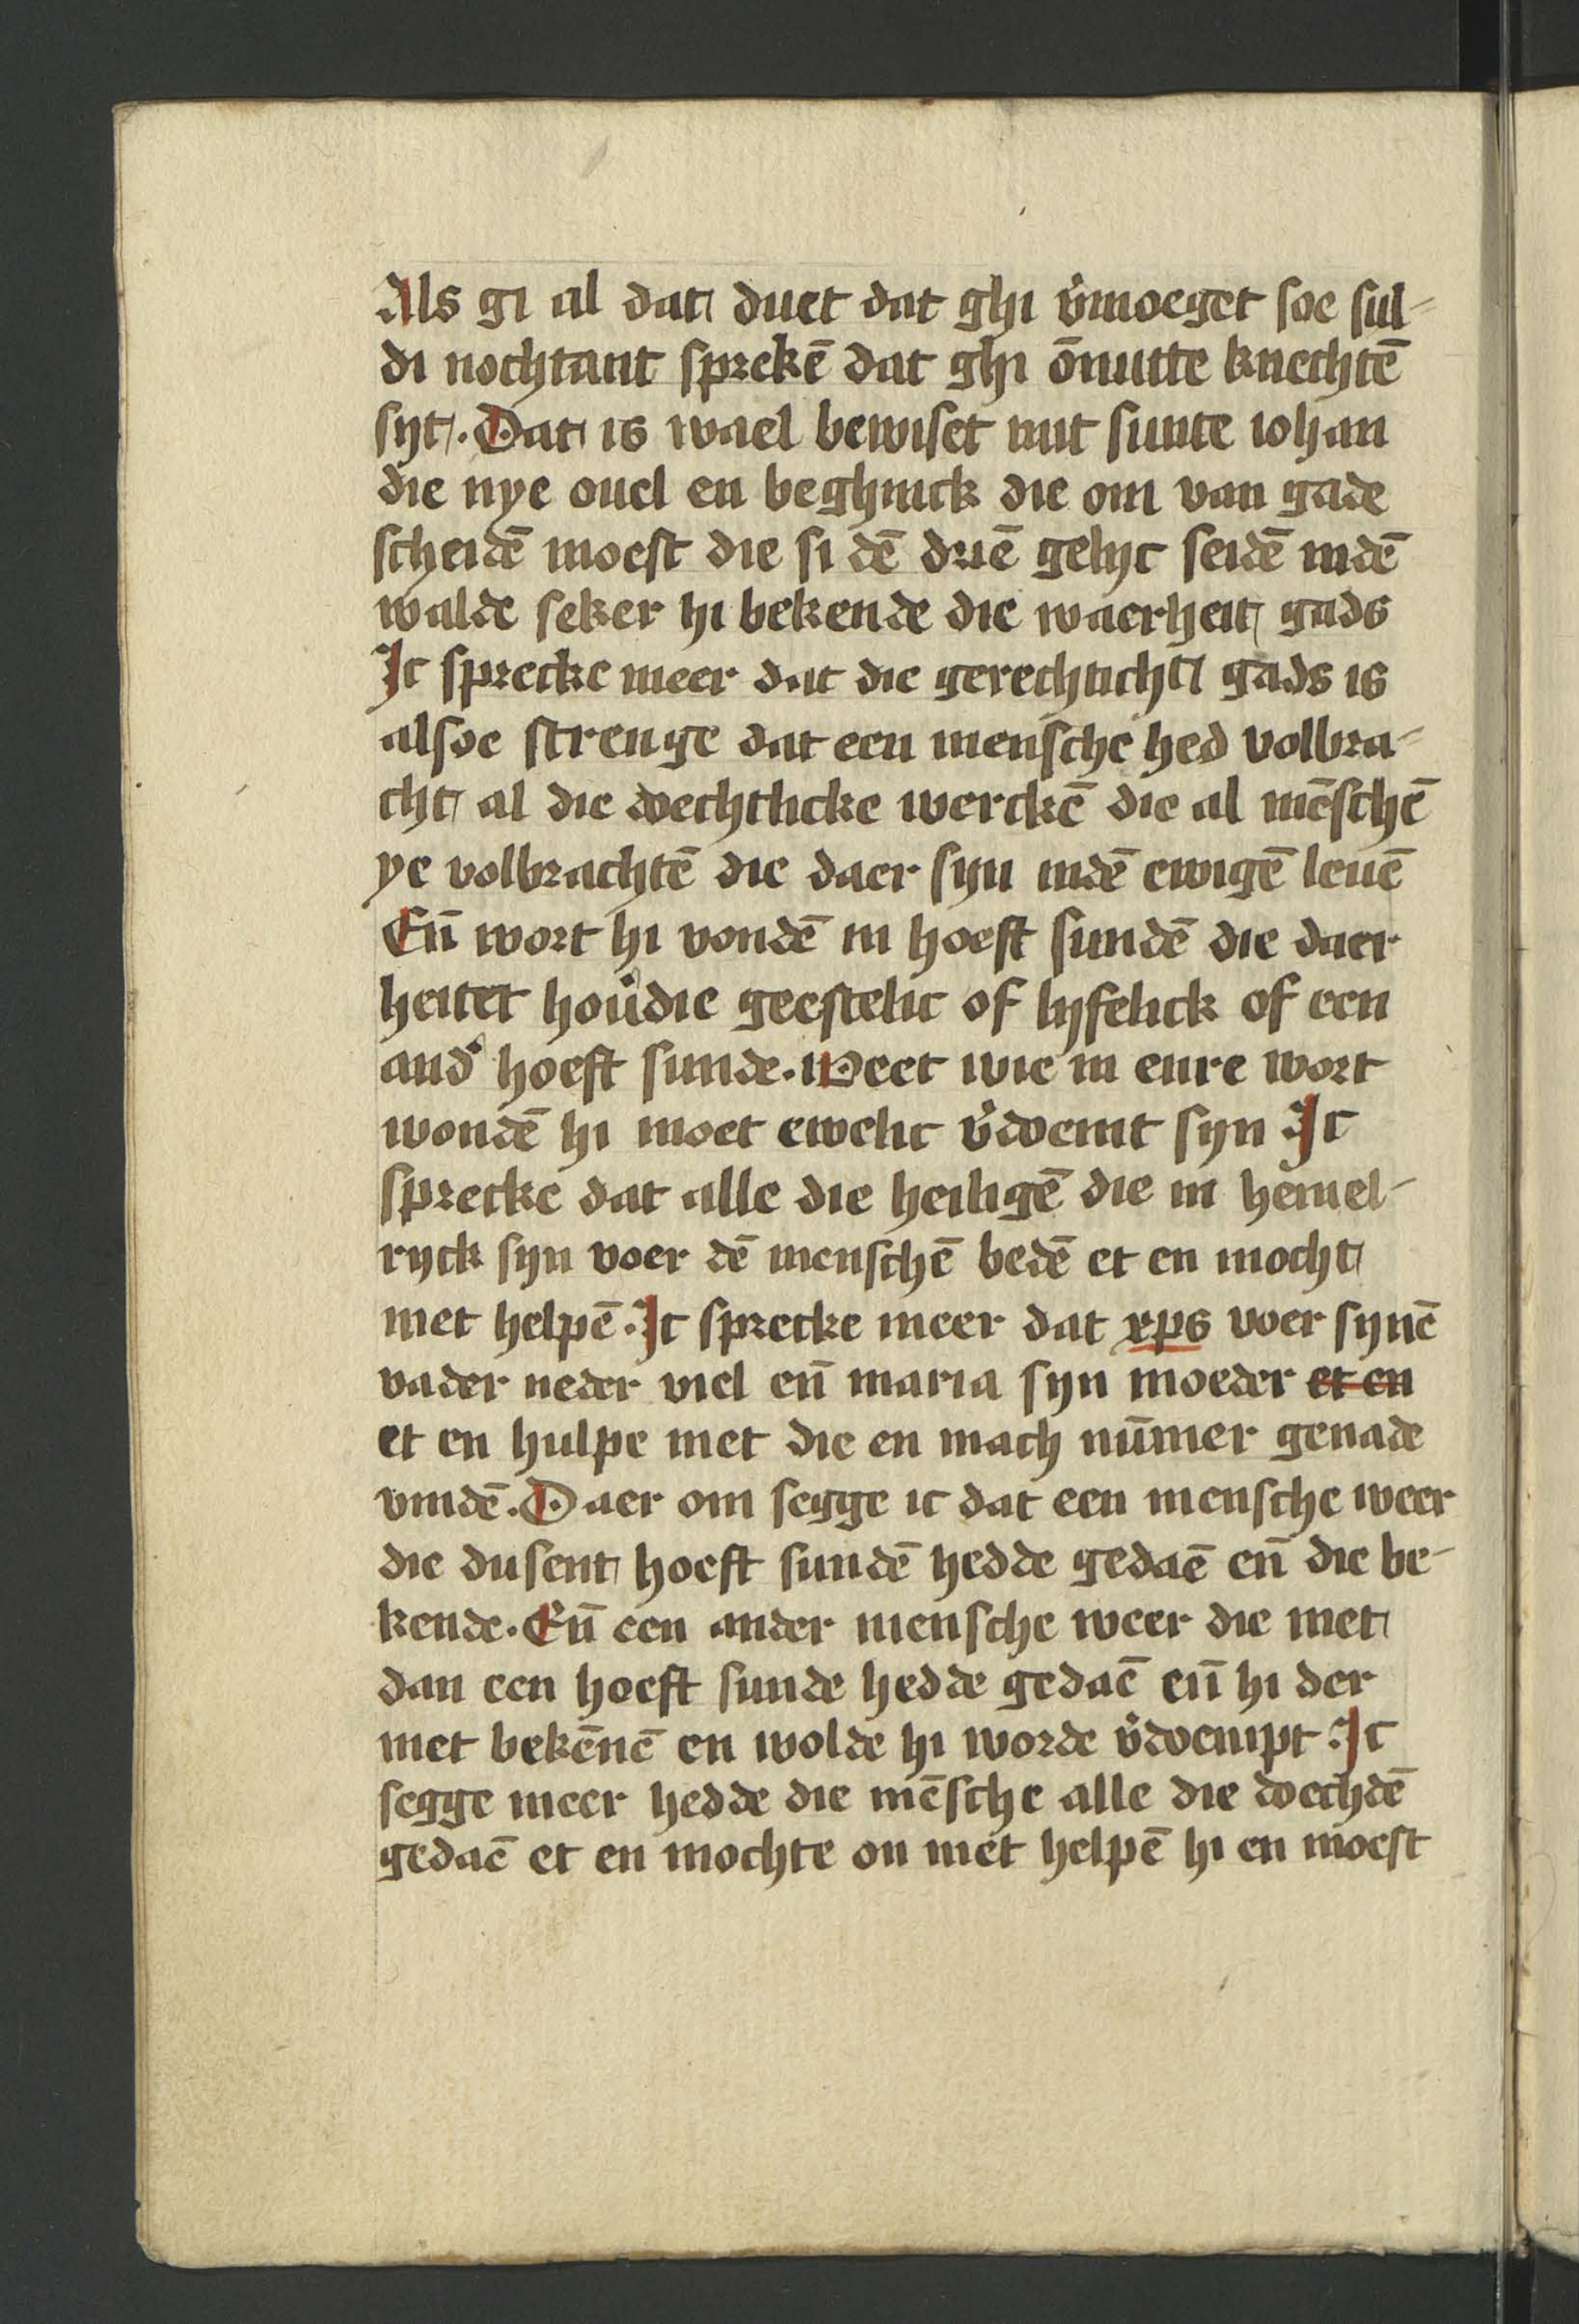 Als gi al dat duet dat ghi v̉moeget soe sul-
di nochtant sprekē dat ghi ōnutte knechtē
syt. Dat is wael bewiset mit sunte iohan
die nye ouel en beghinck die om van gade
scheidē moest die si dē drīē gelijc seidē indē
walde seker hi bekende die waerheit gads
Ic sprecke meer dat die gerechticht gads is
alsoe strenge dat een mensche hed volbra-
cht al die doechtlicke werckē die al mēschē
ye volbrachtē die daer syn indē ewigē leuē
Eñ wort hi vondē in hoeft sundē die daer
heitet hou̇die geestelic of lyfelick of een
and̉ hoeft sunde. Weet wie in enre wort
wondē hi moet ewelic v̉doemt syn Ic
sprecke dat alle die heiligē die in hemel-
ryck syn voer dē menschē bedē et en mocht
niet helpē. Ic sprecke meer dat xps voer synē
vader neder viel eñ maria syn moeder et en
et en hulpe niet die en mach nūmer genade
vindē. Daer om segge ic dat een mensche weer
die dusent hoeft sundē hedde gedaē eñ die be-
kende. Eñ een ander mensche weer die niet
dan een hoeft sunde hedde gedaē eñ hi der
niet bekēnē en wolde hi worde v̉doempt Ic
segge meer hedde die mēsche alle die doechdē
gedaē et en mochte on niet helpē hi en moest